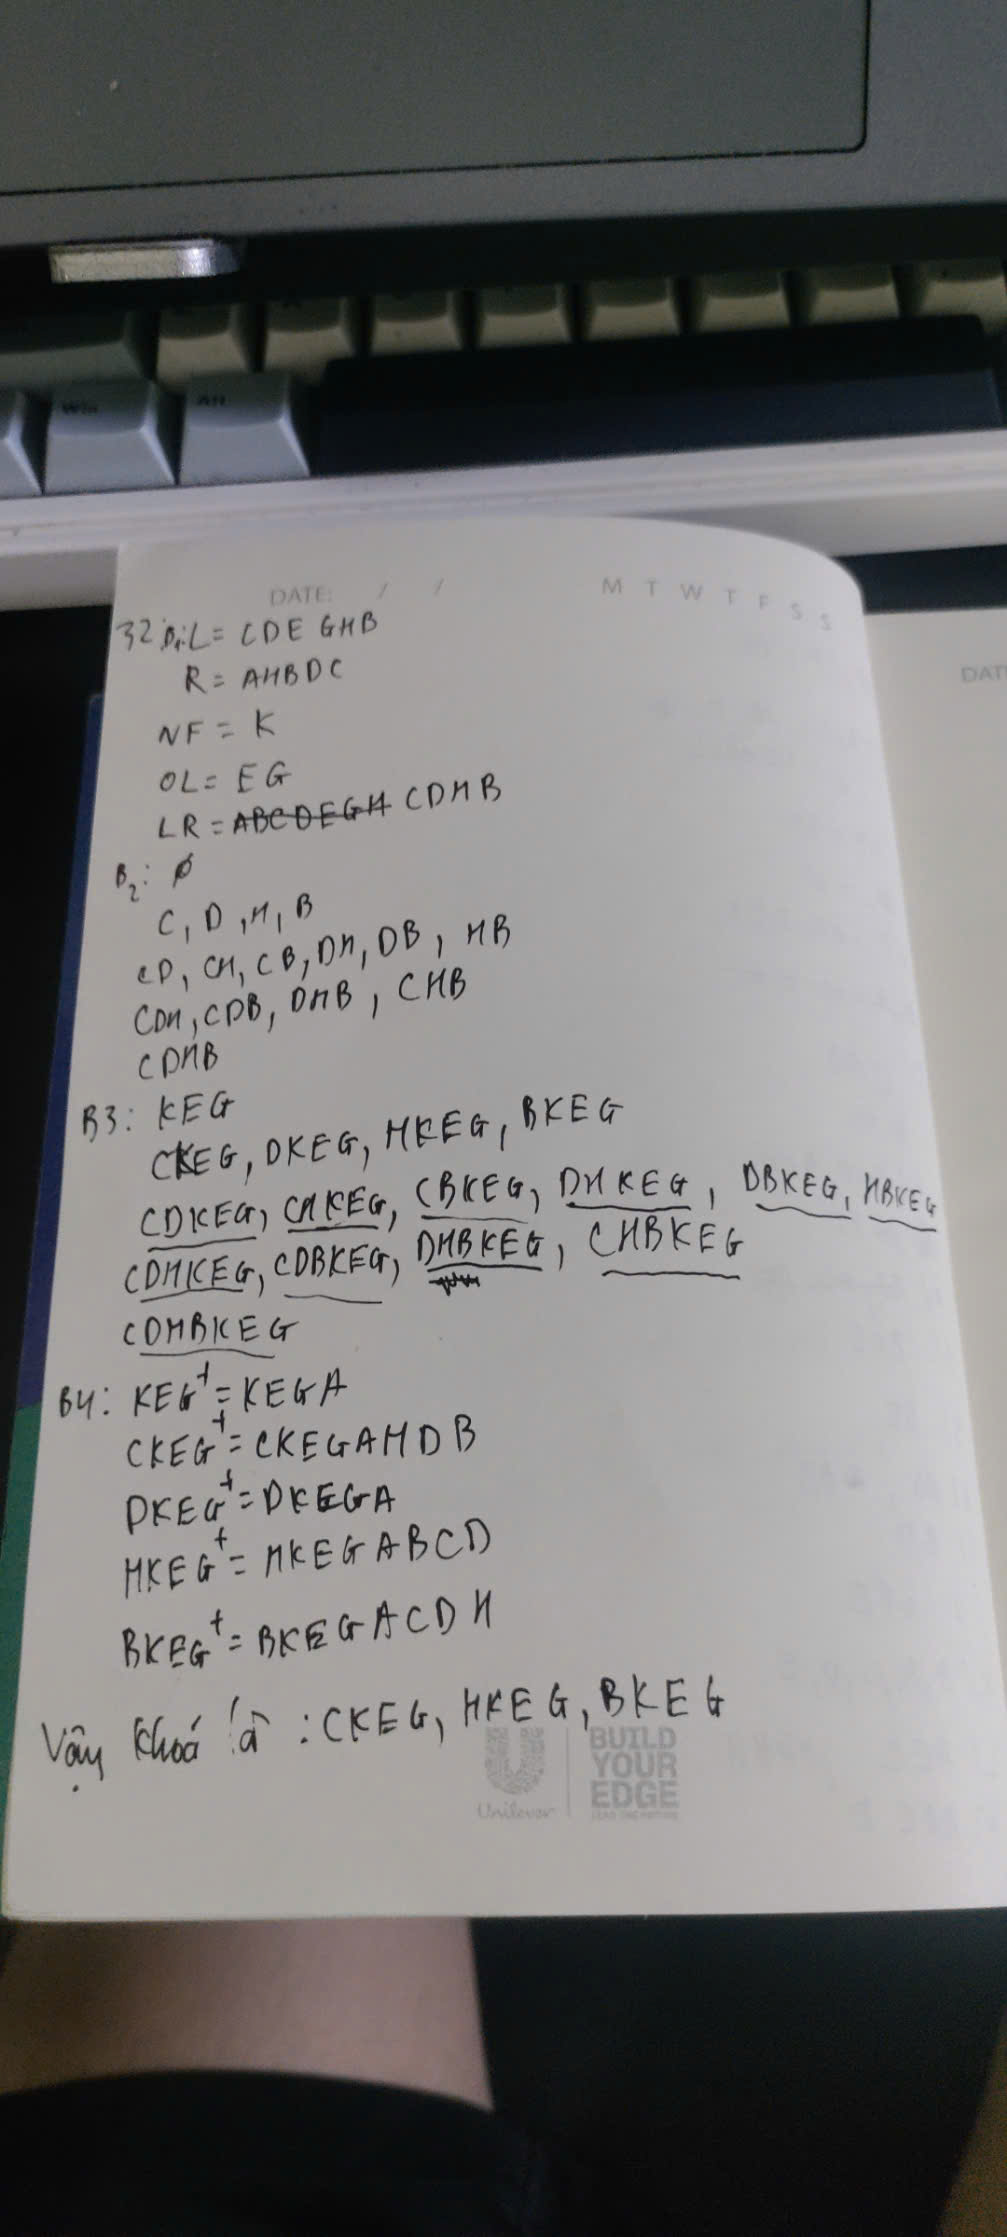 Win
Alt
DATE: / /
M T W T F S S
32 B1: L = CDEGHB
R = AHBDC
NF = K
OL = EG
LR = ABCDEGH CDHB
B2: ∅
C, D, H, B
CD, CH, CB, DH, DB, HB
CDH, CDB, DHB, CHB
CDHB
B3: KEG
CKEG, DKEG, HKEG, BKEG
CDKEG, CHKEG, CBKEG, DHKEG, DBKEG, HBKEG
CDHKEG, CDBKEG, DHBKEG, CHBKEG
CDHBKEG
B4: KEG+ = KEGA
CKEG+ = CKEGAHDB
DKEG+ = DKEGA
HKEG+ = HKEGABCD
BKEG+ = BKEGACDH
Vậy khoá là : CKEG, HKEG, BKEG
Unilever
BUILD
YOUR
EDGE
DAT